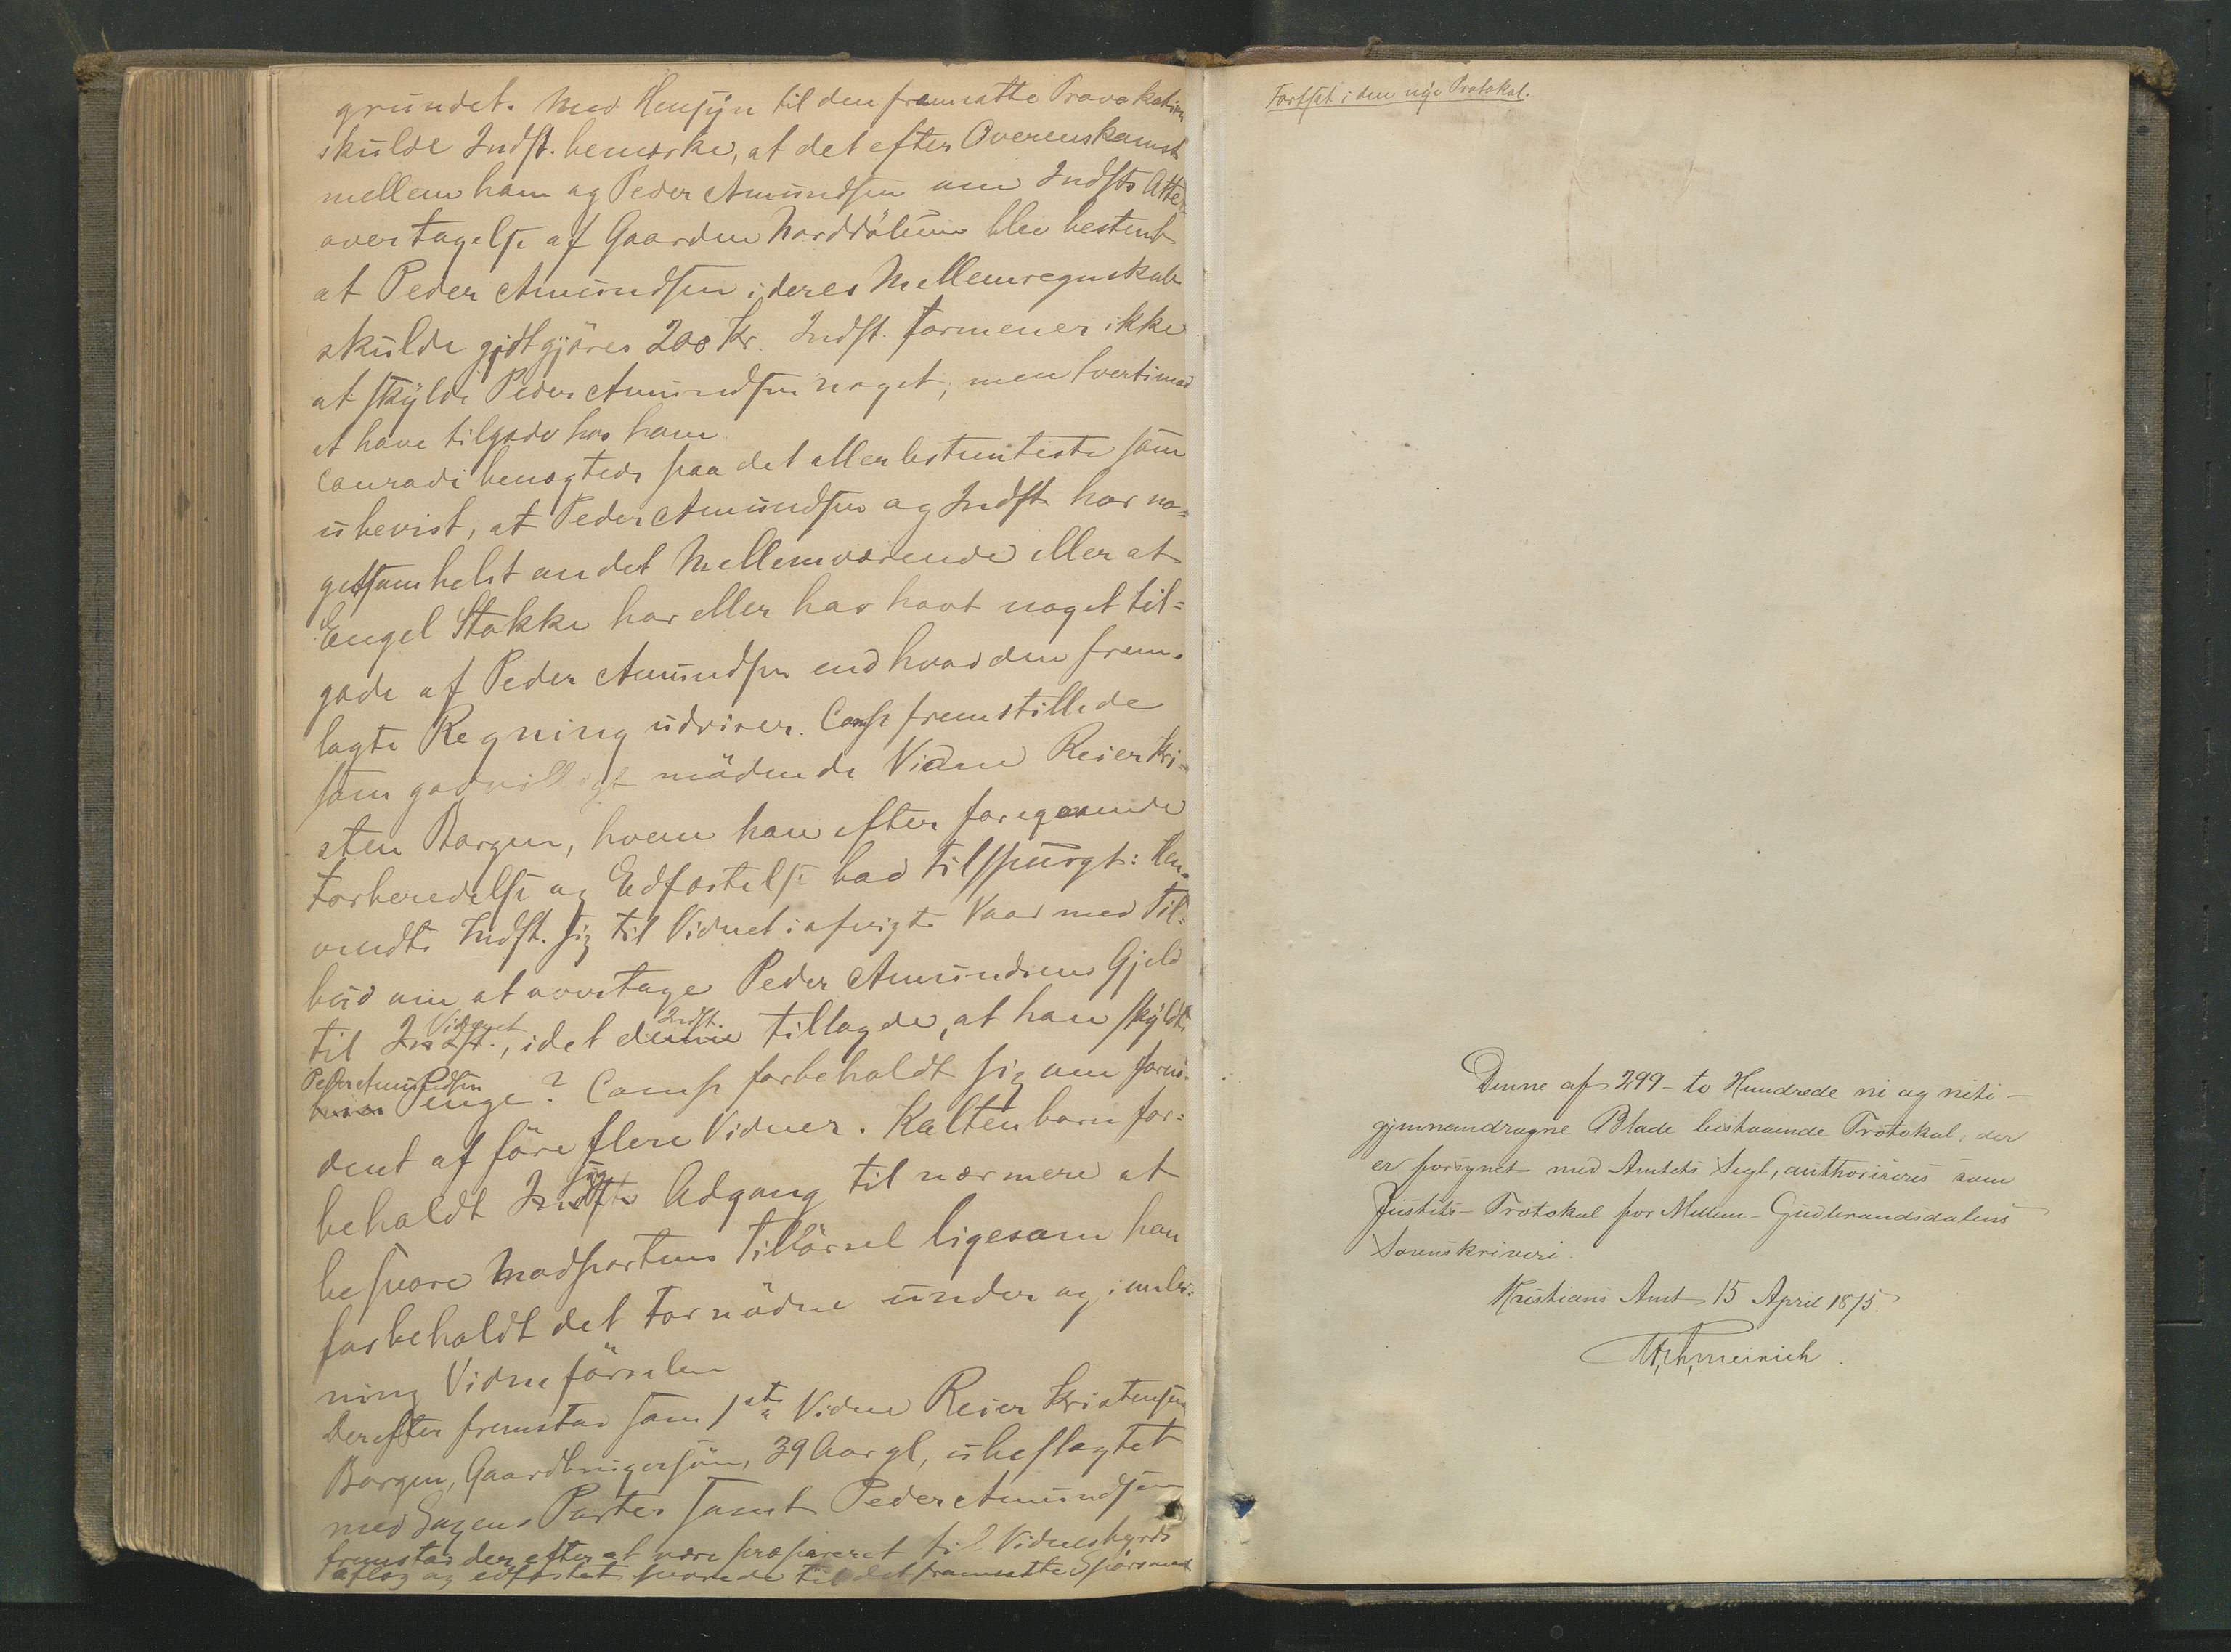 grundet. Med Hensyn til den fremsatte Provokation
skulde Indst. bemærke, at det efter Overenskomst
mellem ham og Peder Amundsen om Indsts Atter-
overtagelse af Gaarden Norddölum blev bestemt
at Peder Amundsen i deres Mellemregnskab
skulde godtgjöres 200 Kr. Indst. formener ikke
at skylde Peder Amundsen noget, men tvertimod
at have tilgode hos ham
Conradi benægtede paa det allerbestemteste som
ubevist, at Peder Amundsen og Indst. har no=
getsomhelst andet Mellemværende eller at
Engel Stokke har eller har havt noget til=
gode af Peder Amundsen end hvad den frem=
lagte Regning udviser. Comp fremstillede
som godvilligt mödende Vidne Reier Kri-
sten Borgen, hvem han efter foregaaende
Forberedelse og Edfæstelse bad tilspurgt: Hen=
vendte Indst. sig til Vidnet i afvigte Vaar med Til=
bud om at overtage Peder Amundsens Gjeld
til Indst. Vidnet, idet denne Indst. tillagde, at han skyldte
Peder Amundsen Penge? Comp forbeholdt sig om fornö-
dent at före flere Vidner. Kaltenborn for=
beholdt Indst. sig Adgang til nærmere at
besvare Modpartens Tilförsel ligesom han
forbeholdt det Fornödne under og i anled=
ning Vidneförselen
Derefter fremstod som 1ste Vidne Reier Kristensen
Borgen, Gaardbrugersön, 39 Aar gl, ubeslagtet
med Sagens Parter samt Peder Amundsen
fremstod derefter at være præpareret til Vidnesbyrds
aflæg og edfæstet svarede til det fremsatte Spörsmaal
Fortsat i den nye Protokol.
Denne af 299 - to Hundrede ni og niti -
gjennemdragne Blade bestaaende Protokol, der
er forsynet med Amtets Segl, authoriseres som
Justits-Protokol for Mellem-Gudbrandsdalens
Sorenskriveri.
Kristians Amt 15 April 1875.